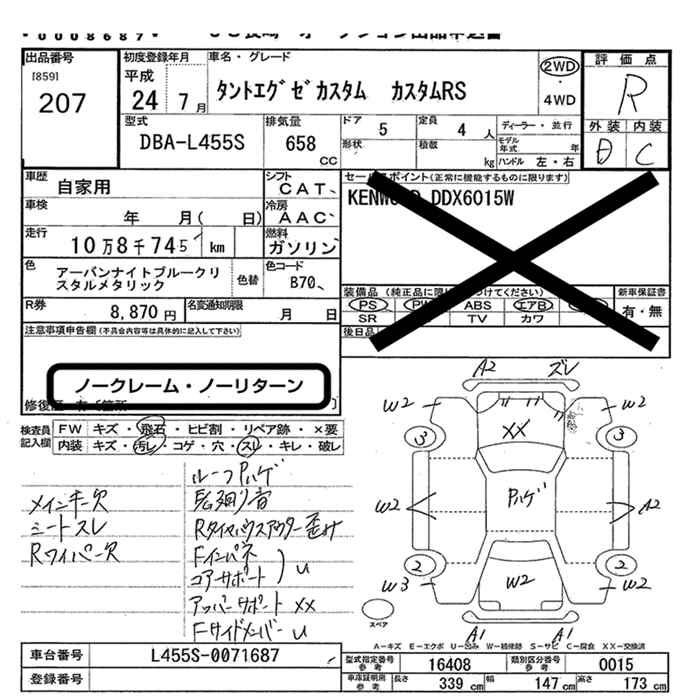 0008687
出品番号
[859]
207
初度登録年月
平成
24 7 月
車名・グレード
タントエグゼカスタム カスタムRS
2WD
・
4WD
評価点
R
型式
DBA-L455S
排気量
658
CC
ドア 5
形状
定員 4 人
積載 kg
ディーラー・並行
モデル年式 年
ハンドル 左・右
外装 内装
D C
車歴
自家用
シフト
CAT、
車検
年 月( 日)
冷房
AAC、
走行
10万8千745 km
燃料
ガソリン
色
アーバンナイトブルークリ
スタルメタリック
色替
色コード
B70、
R券
8,870 円
名変通知期限
月 日
セールスポイント(正常に機能するものに限ります)
DDX6015W
装備品
PS ABS エアB
SR TV カワ
後日品
新車保証書
有・無
注意事項申告欄(不具合内容等は具体的に記入して下さい)
ノークレーム・ノーリターン
検査員
記入欄
FW キズ・飛石・ヒビ割・リペア跡・×要
内装 キズ・汚レ・コゲ・穴・スレ・キレ・破レ
メインキー欠
シートスレ
Rワイパー欠
ルーフハゲ
足廻り音
Rタイヤハウスアウター歪み
Fインパネ
コアサポート ) U
アッパーサポート XX
Fサイドメンバー U
A2 ズレ
W2 W2
XX
3 3
W2 ハゲ A2
2 2
W3 W2 W2
A1 A1
スペア
A-キズ E-エクボ U-凹み W-補修跡 S-サビ C-腐食 XX-交換済
車台番号
L455S-0071687
登録番号
型式指定番号
参考
16408
類別区分番号
参考
0015
車庫証明用
参考
長さ 339 cm 幅 147 cm 高さ 173 cm